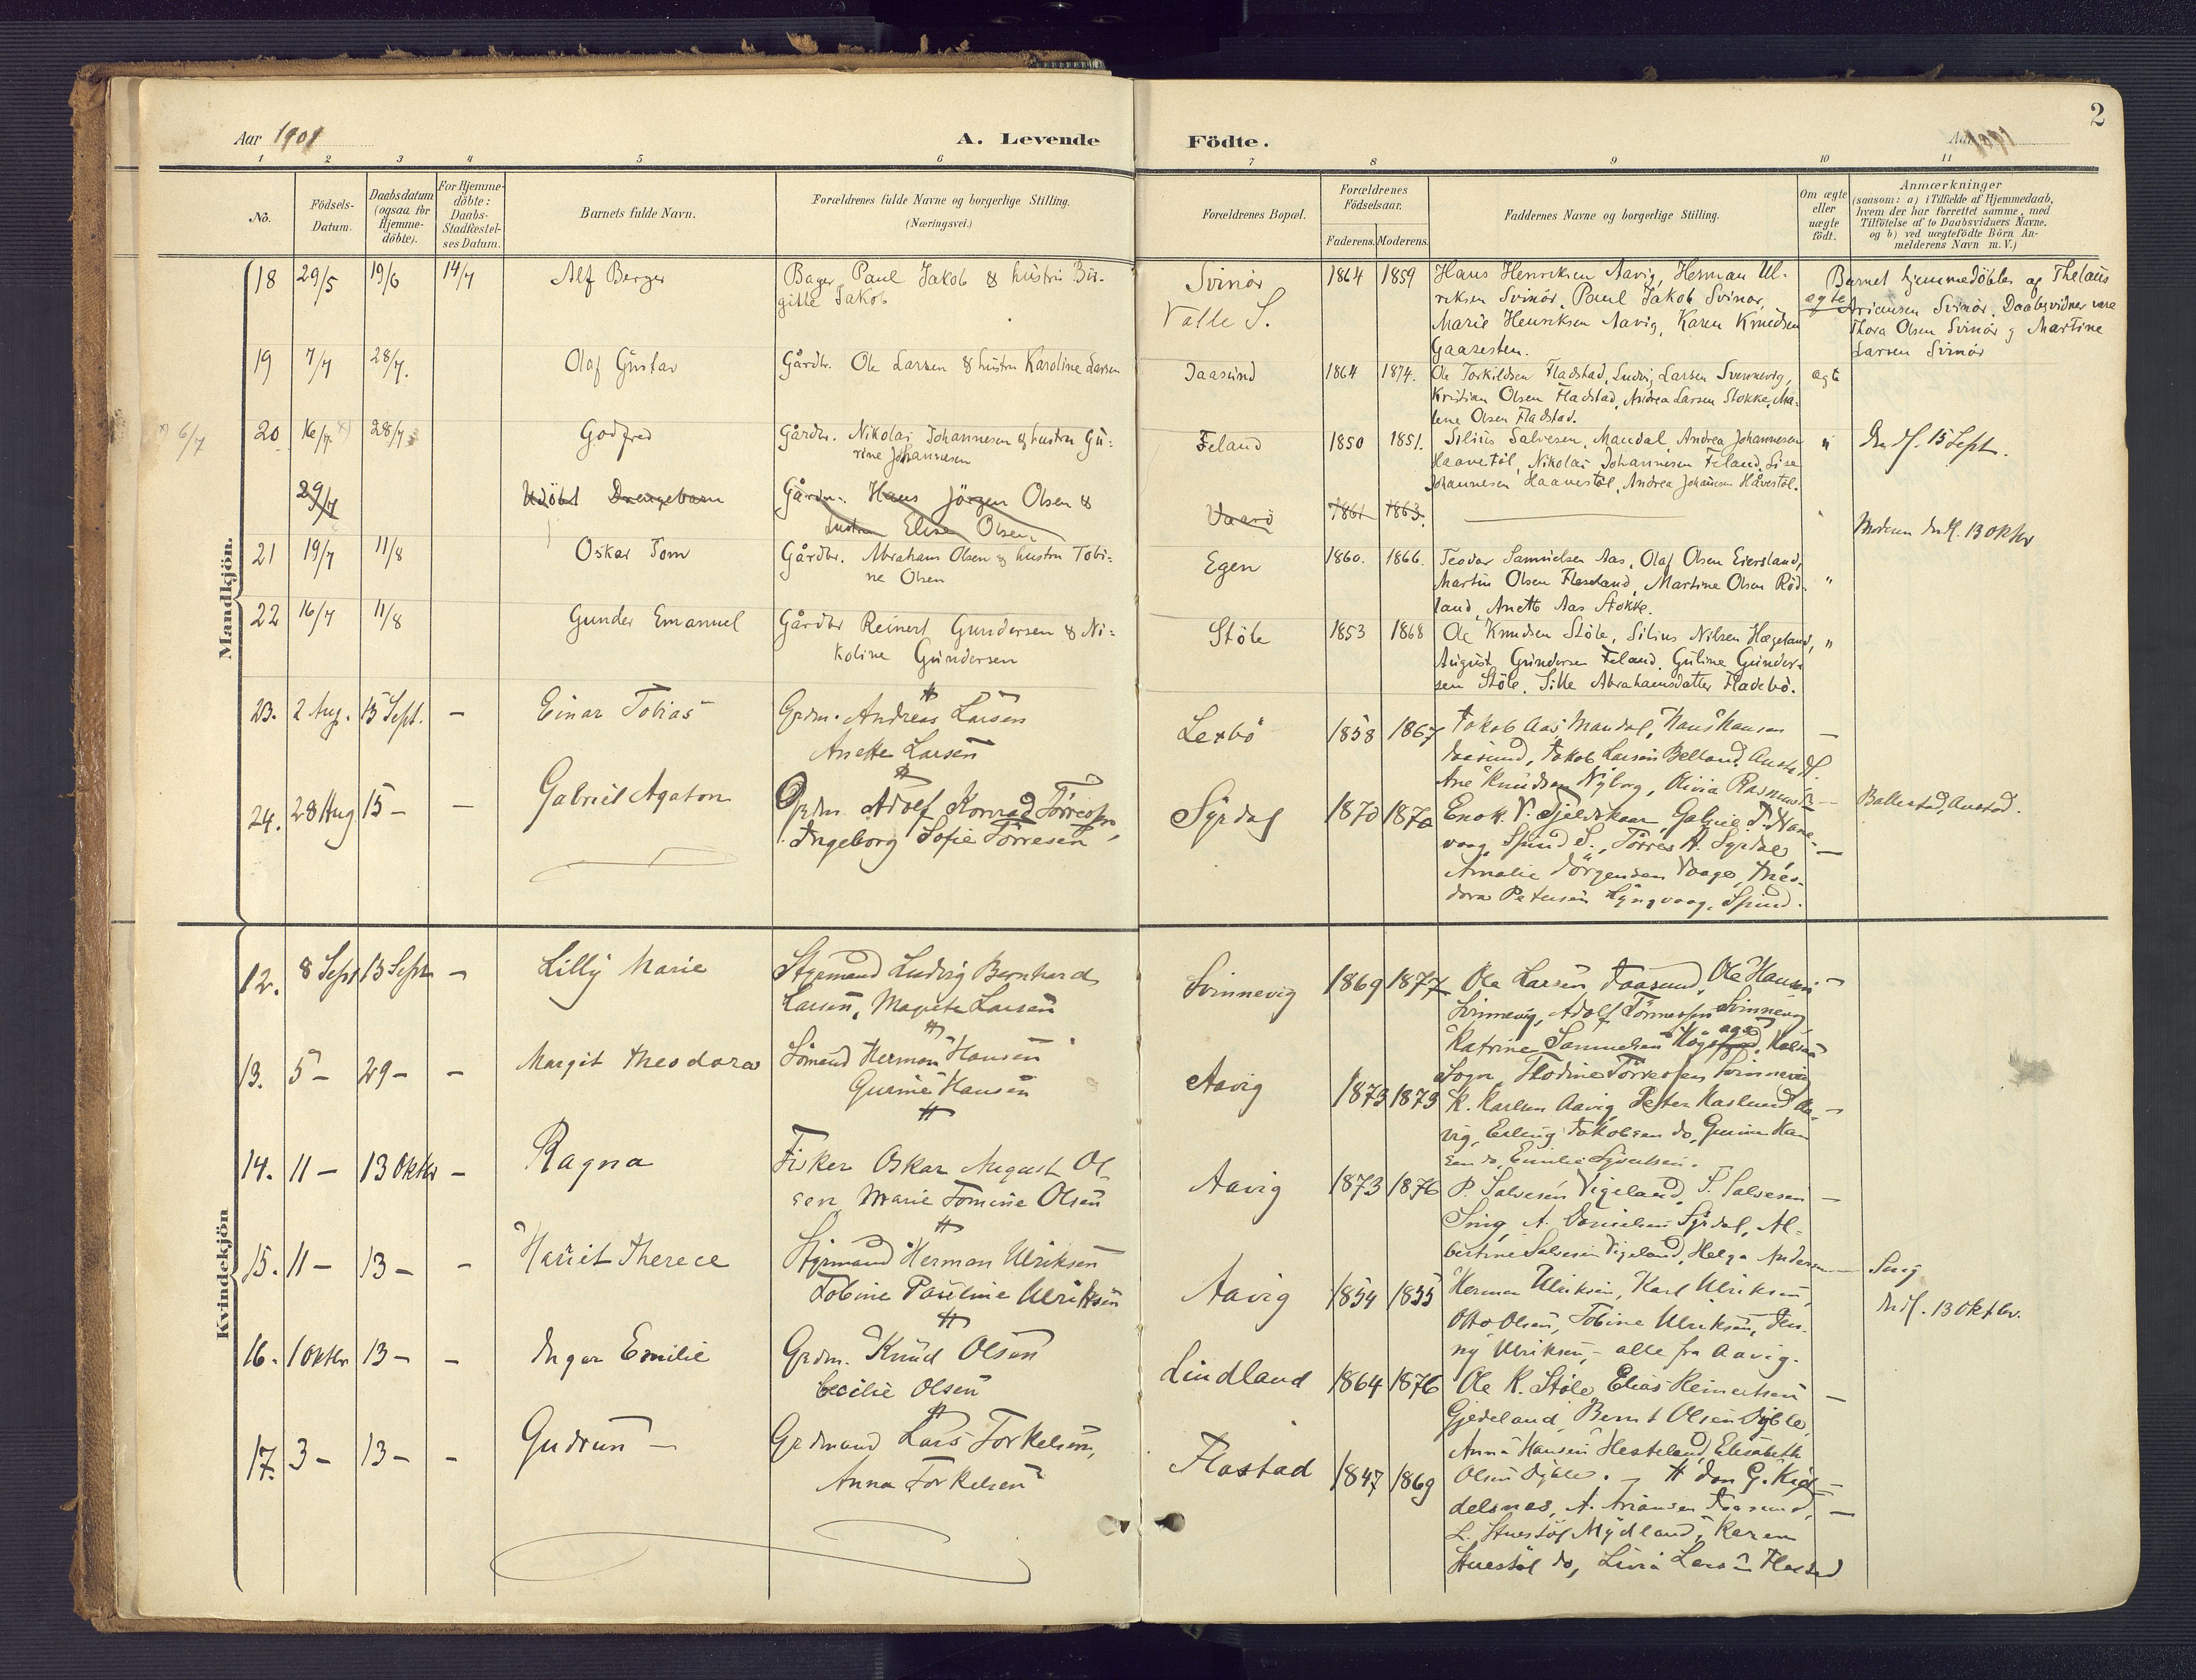 2
Aar 1901
A. Levende
Födte.
Aar 1901
1 2 3 4 5 6 7 8 9 10 11
No.
Födsels-
Datum.
Daabsdatum
(ogsaa for
Hjemme-
döbte).
For Hjemme-
döbte:
Daabs-
Stadfæstel-
ses Datum.
Barnets fulde Navn.
Forældrenes fulde Navne og borgerlige Stilling.
(Næringsvei.)
Forældrenes Bopæl.
Forældrenes
Födselsaar.
Faderens. Moderens.
Faddernes Navne og borgerlige Stilling.
Om ægte
eller
uægte
födt.
Anmærkninger
(saasom: a) i Tilfælde af Hjemmedaab,
hvem der har forrettet samme, med
Tilföielse af to Daabsvidners Navne.
og b) ved uægtefödte Börn An-
melderens Navn m. V.)
Mandkjön.
18 29/5 19/6 14/7 Alf Berger
Bager Paul Jakob & hustru Bir-
gitte Jakob
Svinör
Valle S.
1864 1859
Hans Henriksen Aavig, Herman Ul-
riksen Svinör, Paul Jakob Svinör,
Marie Henriksen Aavig, Karen Knudsen
Gaaresten.
ægte
Barnet hjemmedöbtes af Thelaus
Ariansen Svinör. Daabsvidner vare
Thora Olsen Svinör g Martine
Larsen Svinör
19 7/7 28/7. Olaf Gustav
Gårdbr. Ole Larsen & hustru Karoline Larsen
Jaasund
1864 1874.
Ole Torkildsen Fladstad, Ludvig Larsen Svennevig,
Kristian Olsen Fladstad, Andrea Larsen Stokke, Ma-
lene Olsen Fladstad.
ægte
x) 6/7
20 16/7 x) 28/7 Godfred
Gårdbr. Nikolai Johannesen & hustru Gu-
rine Johannesen
Feland
1850 1851.
Silius Salvesen, Mandal, Andrea Johannesen
Haavestöl, Nikolai Johannesen Feland, Lise
Johannesen Haavestöl, Andrea Johansen Håvestöl.
"
15 Sept.
29/7 Udöbt Drengebarn
Gårdm. Hans Jörgen Olsen &
hustru Elise Olsen
1861 1863.
13 oktbr
21 19/7 11/8 Oskar Tom
Gårdbr. Abraham Olsen & hustru Tobi-
ne Olsen
Egen
1860. 1866.
Teodor Samuelsen Aas, Olaf Olsen Eiersland,
Martin Olsen Fladeland, Martine Olsen Röd-
land, Anette Aas Stokke.
"
22 16/7 11/8 Gunder Emanuel
Gårdbr Reinert Gundersen & Ni-
koline Gundersen
Stöle
1853 1868
Ole Knudsen Stöle, Silius Nilsen Hægeland,
August Gundersen Feland. Guline Gunder-
sen Stöle. Sille Abrahamsdatter Fladebö.
"
23. 2 Aug. 15 Sept. — Einar Tobias
Grdm. Andreas Larsen
Anette Larsen
Lexbö
1858 1867
Jakob Aas Mandal, Hans Hansen
Jaasund, Jakob Larsen Belland,
Ane Knudsen Nyborg, Olivia
24. 28 Aug 15 — — Gabriel Agaton
Grdm. Adolf Konrad Törresen,
Ingeborg Sofie Törresen
Syrdal
1870 1870
Enok V. Gjeldskaar, Gabriel
Spind S., Törres A. Syrdal,
Amalie Jörgensen Vaage, Theo-
dora Petersen Lyngvaag, Spind.
Kvindekjön
12. 8 Sept 15 Sept — Lilly Marie
Styrmand Ludvig Bernhard
Larsen, Magrete Larsen
Svinnevig
1869 1877
Ole Larsen, Jaasund, Ole Hansen
Svinnevig, Adolf Törressen Svinnevig
Katrine Samuelsen
Sogn, Thodine Törresen Svinnevig
13. 5 — 29 — — Margit Theodora
Sömand Herman Hansen
Gurine Hansen
Aavig
1873 1873
K. Karlsen Aavig, Peter Kaslund Aa-
vig, Erling Jakobsen do, Gurine Han
sen do, Emilie Syvertsen.
14. 11 — 13 Oktbr — Ragna
Fisker Oskar August Ol-
sen Marie Tomine Olsen
Aavig
1873 1876
P. Salvesen Vigeland, S. Salvesen
Snig, A. Danielsen Syrdal, Al-
bertine Salvesen Vigeland, Helga Andersen
Snig
15. 11 — 13 — — Hariet Therece
Styrmand Herman Ulriksen
Tobine Pauline Ulriksen
Aavig
1854 1855
Herman Ulriksen, Karl Ulriksen,
Otto Olsen, Tobine Ulriksen, Jen-
ny Ulriksen, — alle fra Aavig.
13 Oktbr.
16. 1 Oktbr 13 — — Inger Emilie
Grdm. Knud Olsen
Cecilie Olsen
Lindland
1864 1876
Ole K. Stöle, Elias Reinertsen
Gjedeland, Bernt Olsen Dyble,
Anna Hansen Hesteland, Elisabeth
Olsen Dyble.
17. 3 — 13 — — Gudrun —
Grdmand Lars Torkelsen,
Anna Torkelsen
Flastad
1847 1869
delsnes, A. Ariansen Jaasund,
L. Stuestöl Mydland, Karen
Stuestöl do, Livia Larsen Flastad